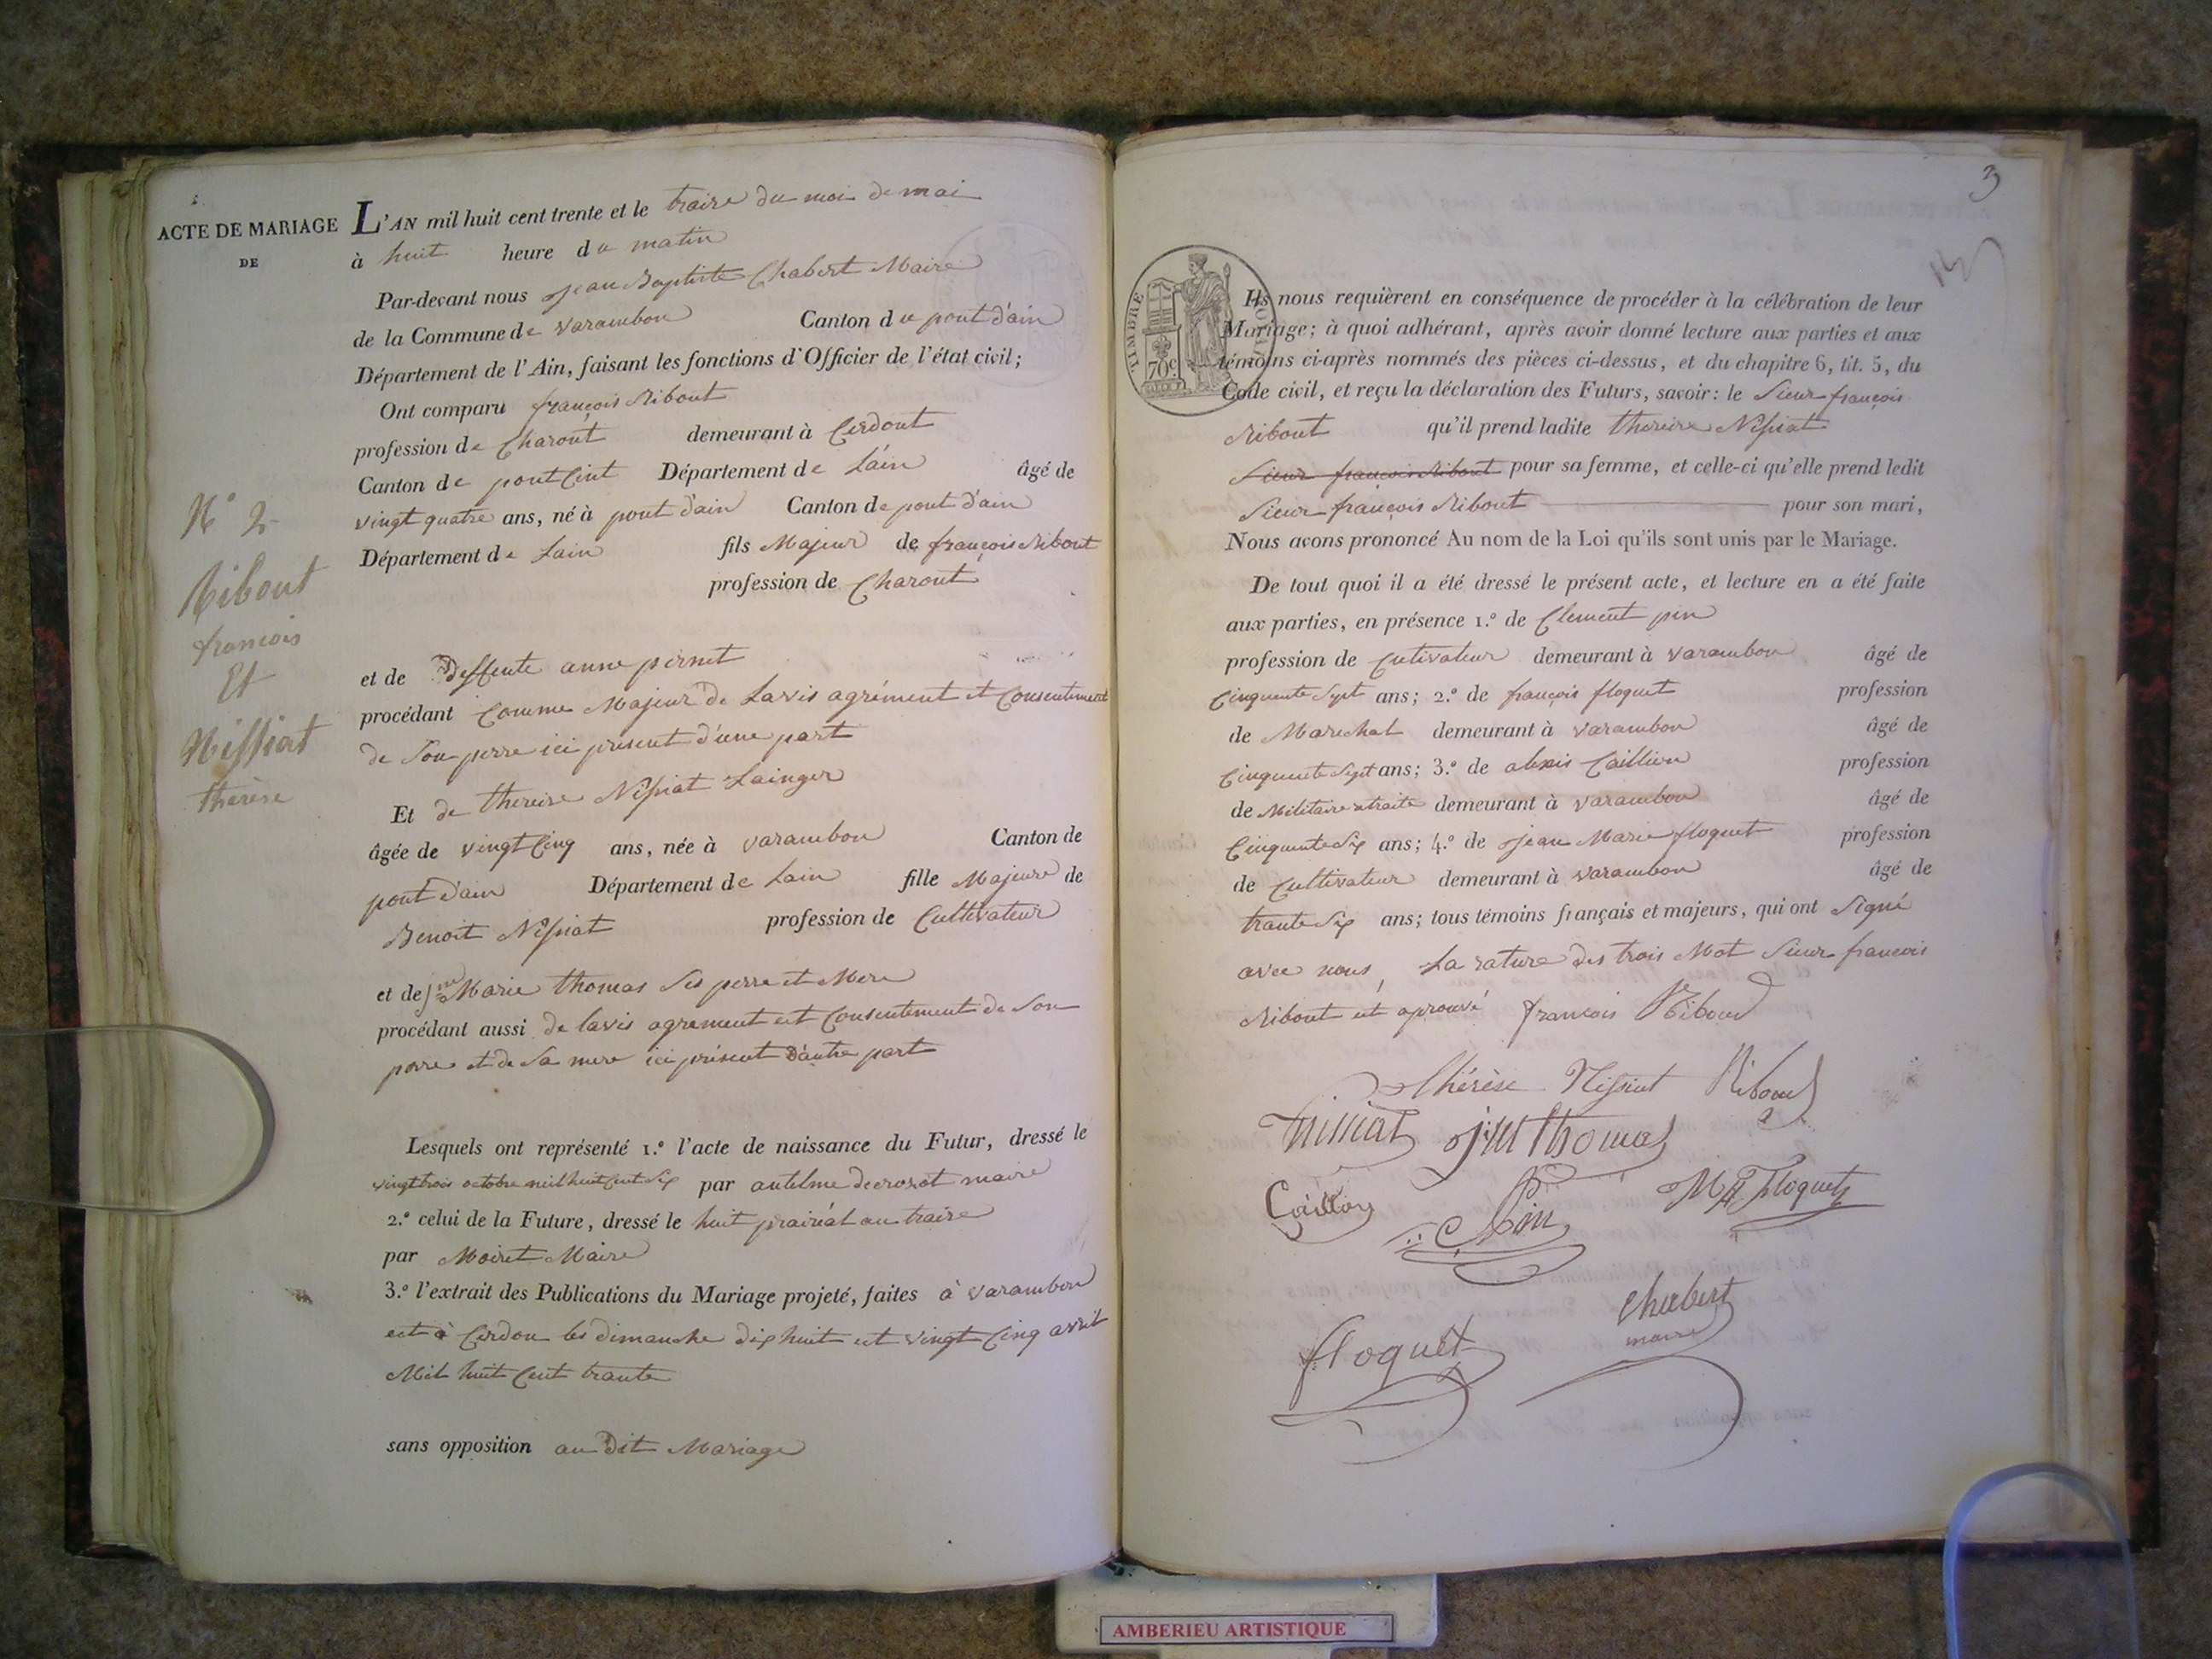 ACTE DE MARIAGE
DE
N° 2
Ribout
francois
Et
Nissiat
thérèse
L'AN mil huit cent trente et le traize du moi de mai
à huit heure du matin
Par-devant nous jean Baptiste Chabert Maire
de la Commune de varambon Canton du pont d'ain
Département de l'Ain, faisant les fonctions d'Officier de l'état civil;
Ont comparu françois Ribout
profession de Charont demeurant à Cerdont
Canton de pont Cint Département de Lain âgé de
vingt quatre ans, né à pont d'ain Canton de pont d'ain
Département de Lain fils Majeur de françois Ribout
profession de Charont
et de deffente anne pernet
procédant Comme Majeur de Lavis agrément et Consentement
de Son perre ici present d'une part
Et de thereise Nissiat Lainger
âgée de vingt Cinq ans, née à varambon Canton de
pont d'ain Département de Lain fille Majeure de
Benoit Nissiat profession de Cultivateur
et de Marie thomas Ses perre et Mere
procédant aussi de lavis agrement et Consentement de Son
perre et de Sa mere ici présent D'autre part
Lesquels ont représenté 1.° l'acte de naissance du Futur, dressé le
vingt trois octobre mil huit Cent Six par antelme decrozot maire
2.° celui de la Future, dressé le huit prairéal an traize
par Moiret Maire
3.° l'extrait des Publications du Mariage projeté, faites à varambon
et à Cerdon les dimanche dix huit et vingt Cinq avril
Mil huit Cent trante
sans opposition au Dit Mariage
3
TIMBRE ROYAL
70c
Ils nous requièrent en conséquence de procéder à la célébration de leur
Mariage; à quoi adhérant, après avoir donné lecture aux parties et aux
témoins ci-après nommés des pièces ci-dessus, et du chapitre 6, tit. 5, du
Code civil, et reçu la déclaration des Futurs, savoir: le Sieur françois
Ribout qu'il prend ladite thereise Nissiat
Sieur françois Ribout pour sa femme, et celle-ci qu'elle prend ledit
Sieur françois Ribout pour son mari,
Nous avons prononcé Au nom de la Loi qu'ils sont unis par le Mariage.
De tout quoi il a été dressé le présent acte, et lecture en a été faite
aux parties, en présence 1.° de Clement pin
profession de Cutivateur demeurant à varambon âgé de
Cinquente Sept ans; 2.° de françois floquet profession
de Marechal demeurant à varambon âgé de
Cinquente Sept ans; 3.° de alexis Caillion profession
de Militaire retraite demeurant à varambon âgé de
Cinquente Six ans; 4.° de jean Marie floquet profession
de Cultivateur demeurant à varambon âgé de
trante Six ans; tous témoins français et majeurs, qui ont Signé
avec nous, La rature des trois Mot Sieur francois
Ribout et aprouvé françois Riboud
thérèse Nissiat Riboud
Nissiat Thomas
Caillon C Pin Floquet
floquet Chabert
maire
AMBERIEU ARTISTIQUE